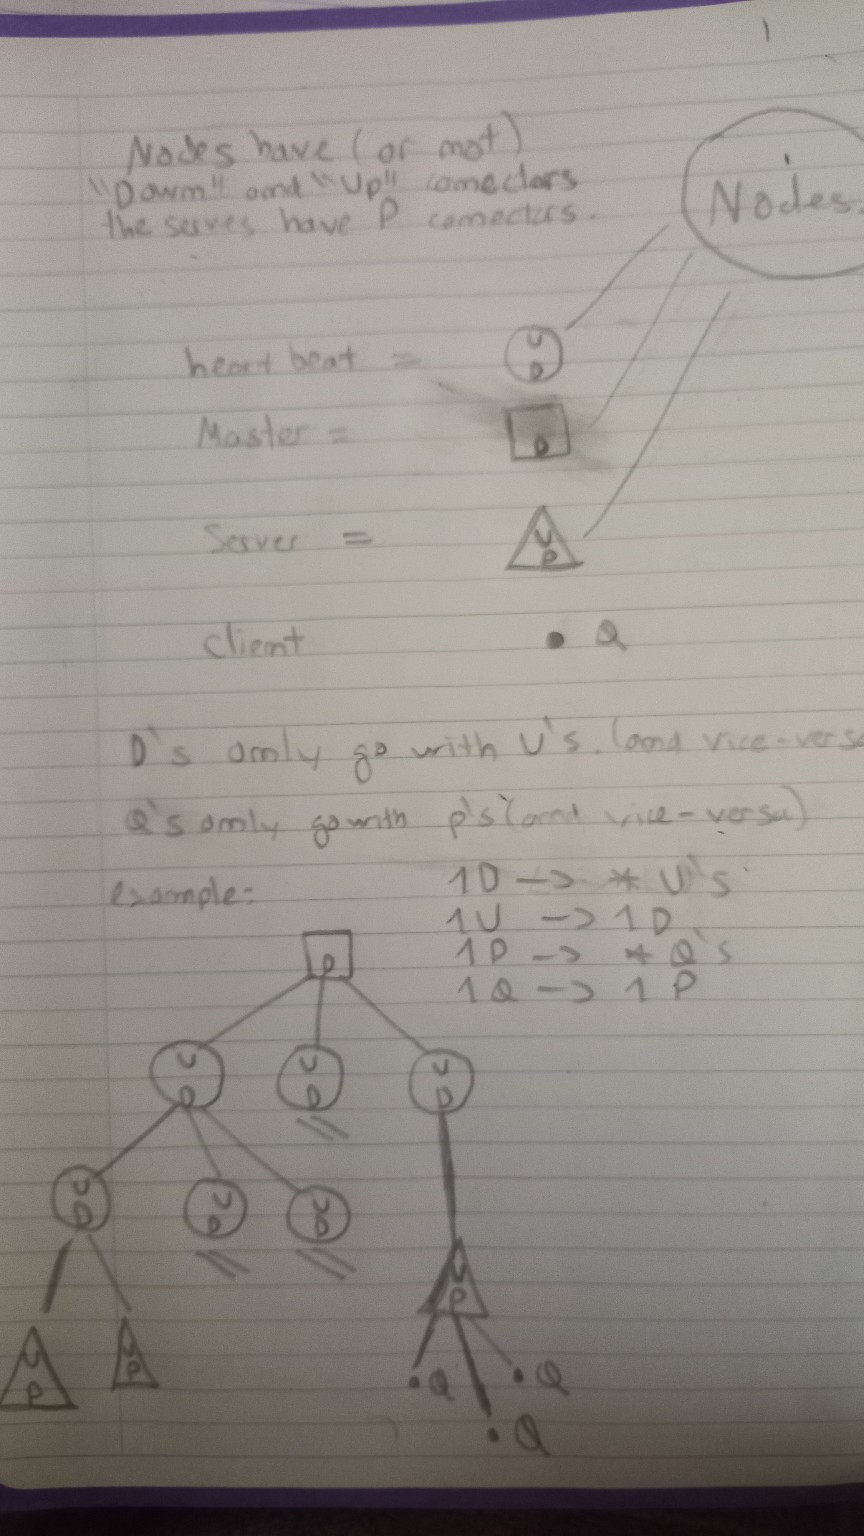 1
Nodes have (or not)
"Down" and "Up" conectors
the serves have P conectors.
Nodes.
heart beat = U D
Master = D
Server = U P
Client • Q
D's only go with U's. (and vice-vers
Q's only go with P's (and vice-versa)
example:
1D -> * U's
1U -> 1D
1P -> * Q's
1Q -> 1P
D
U D U D U D
U D U D U D
U P
U P U P
Q Q
Q